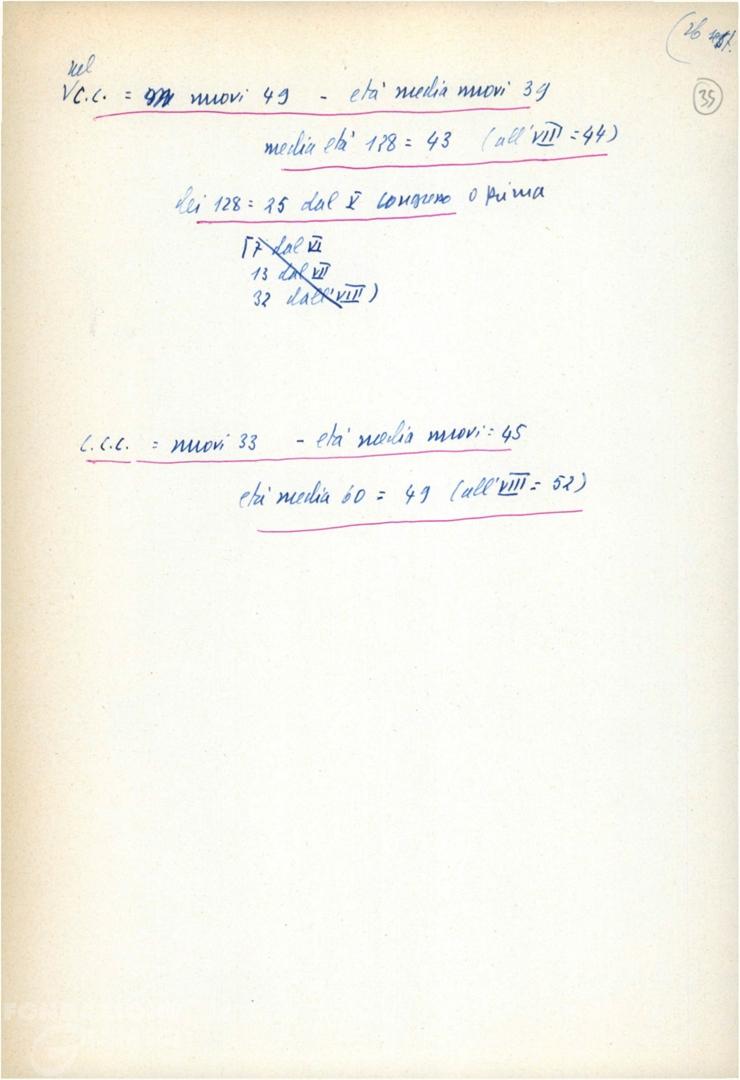 (26 sett.
35
nel
√C.C. = nuovi 49 - età media nuovi 39
media età 128 = 43 (all'VIII = 44)
dei 128 = 25 dal V congresso o prima
[7 dal VI
13 dal VII
32 dall'VIII)
C.C.C. = nuovi 33 - età media nuovi = 45
età media 60 = 49 (all'VIII = 52)